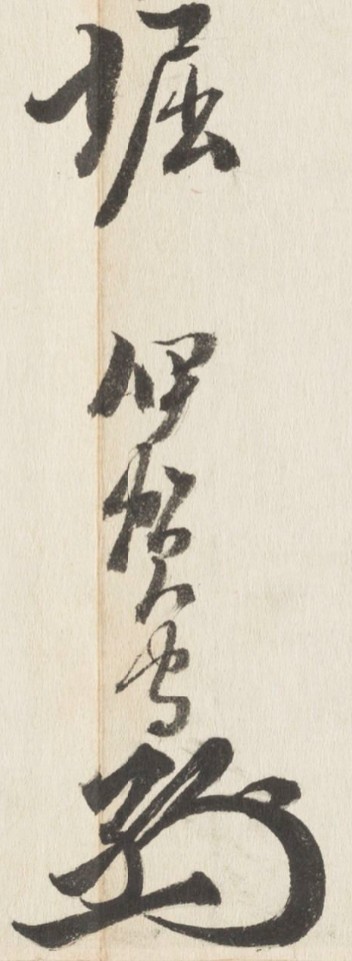 堀
伊賀守